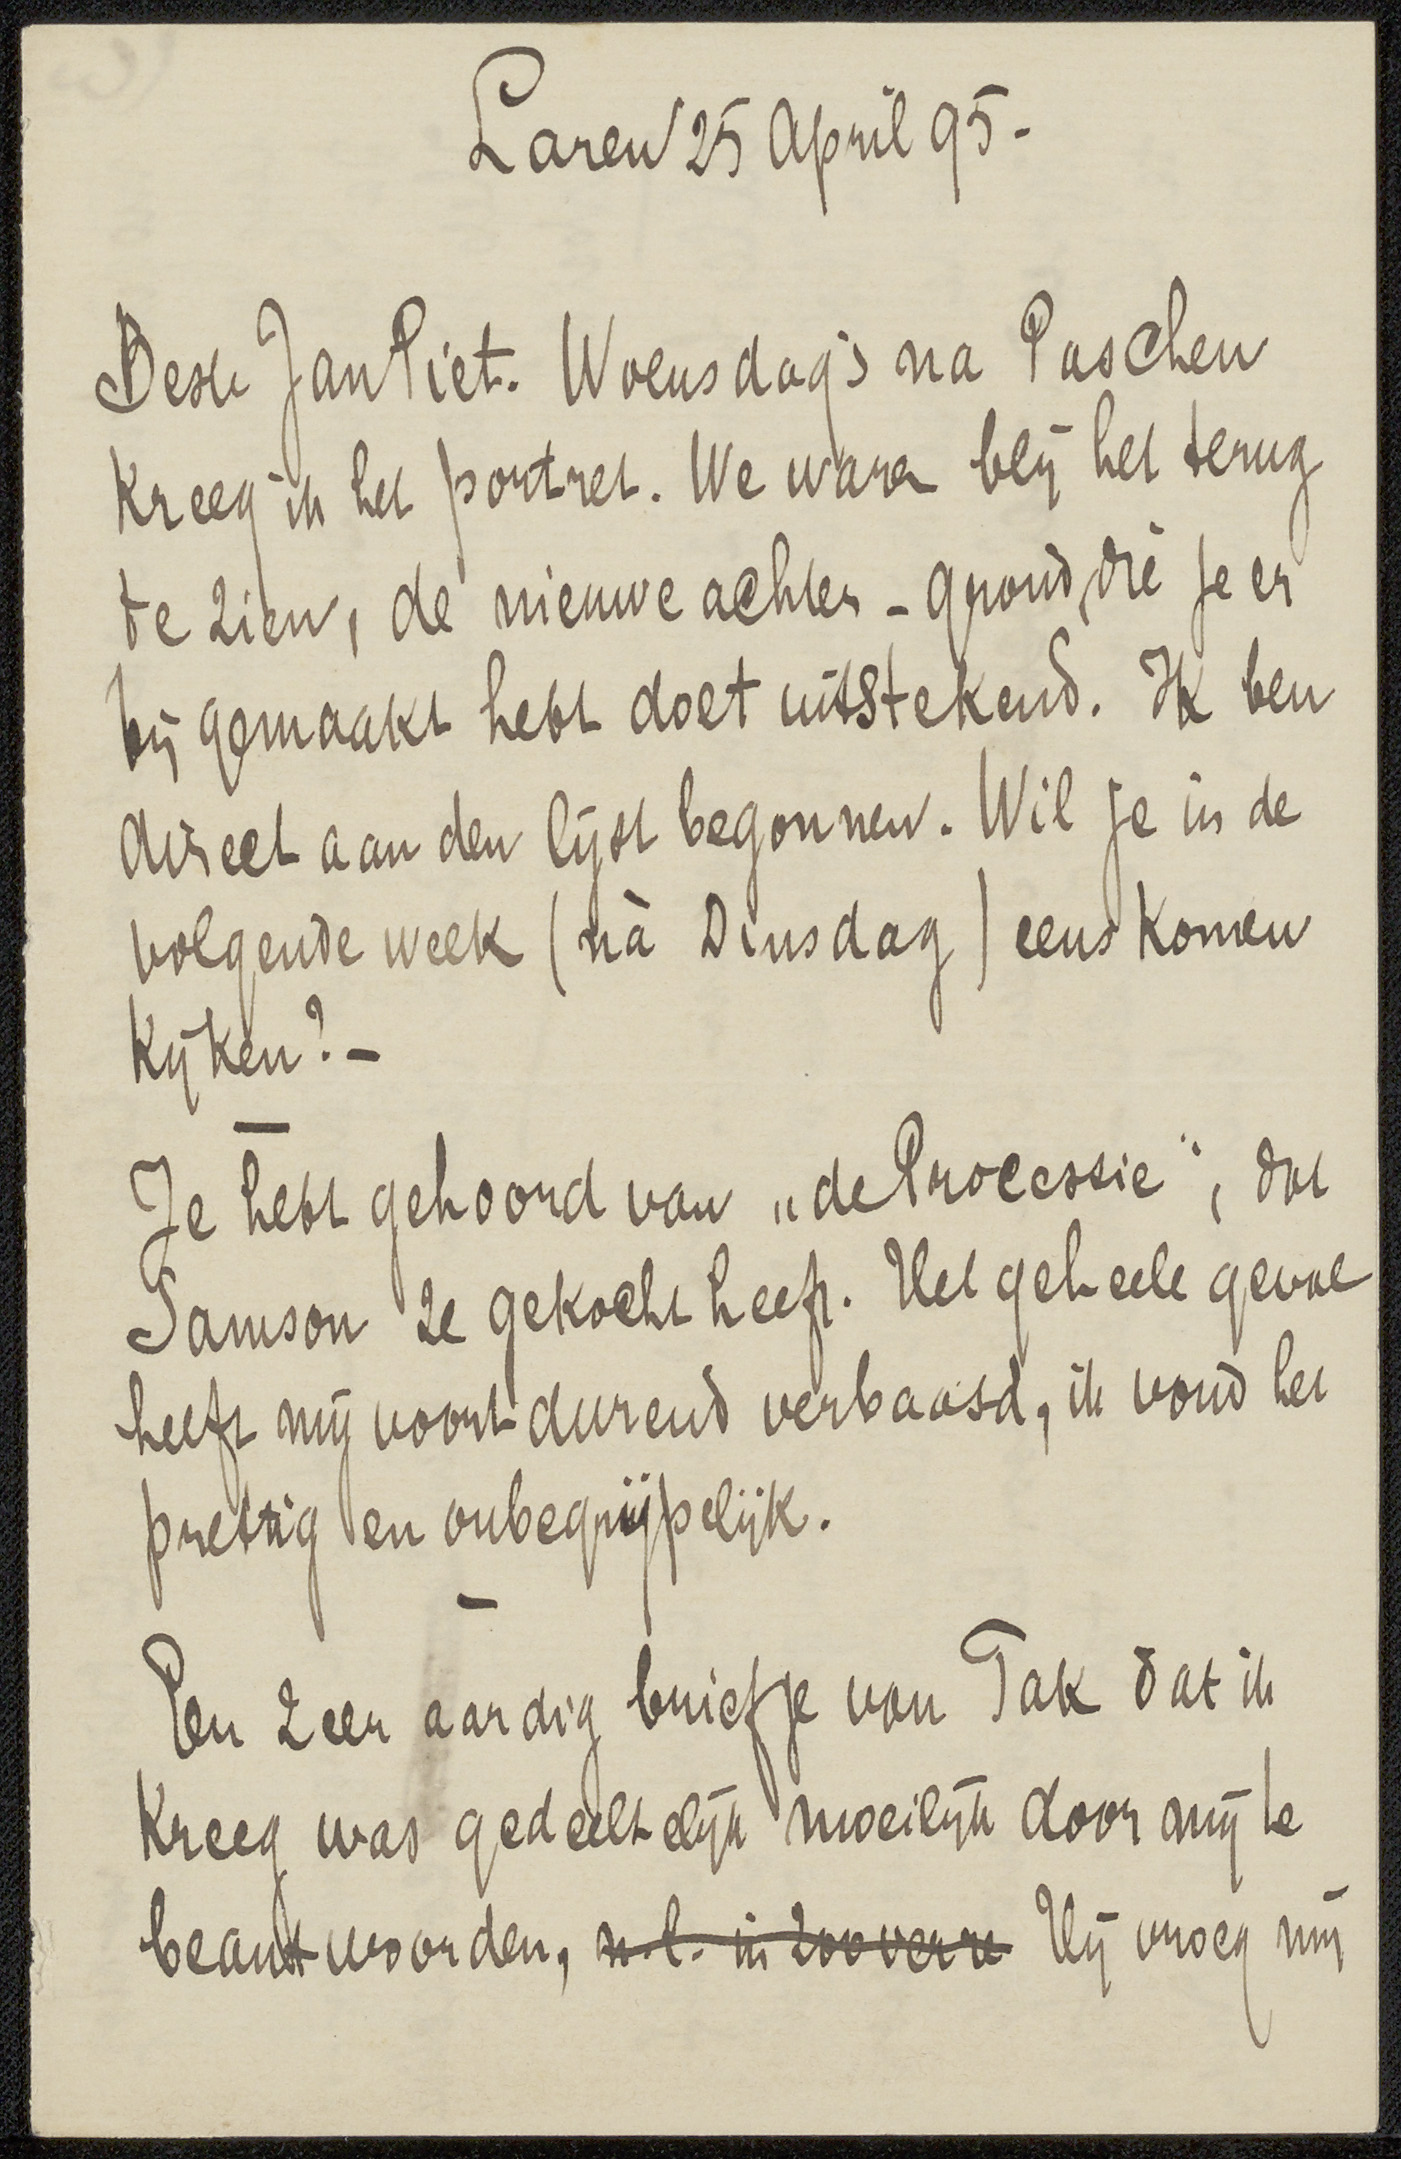 Laren 25 April 95-
Beste Jan Piet. Woensdag's na Paschen
kreeg ik het portret. We waren blij het terug
te zien, de nieuwe achter - grond, die je er
bij gemaakt hebt doet uitstekend. Ik ben
direct aan den lijst begonnen. Wil je in de
volgende week (nà Dinsdag) eens komen
kijken? -
Je hebt gehoord van „de Processie", dat
Samson ze gekocht heeft. Het geheele geval
heeft mij voortdurend verbaasd, ik vond het
prettig en onbegrijpelijk.
Een zeer aardig briefje van Tak dat ik
kreeg was gedeeltelijk moeilijk door mij te
beantwoorden, n.l. in zooverre Hij vroeg mij